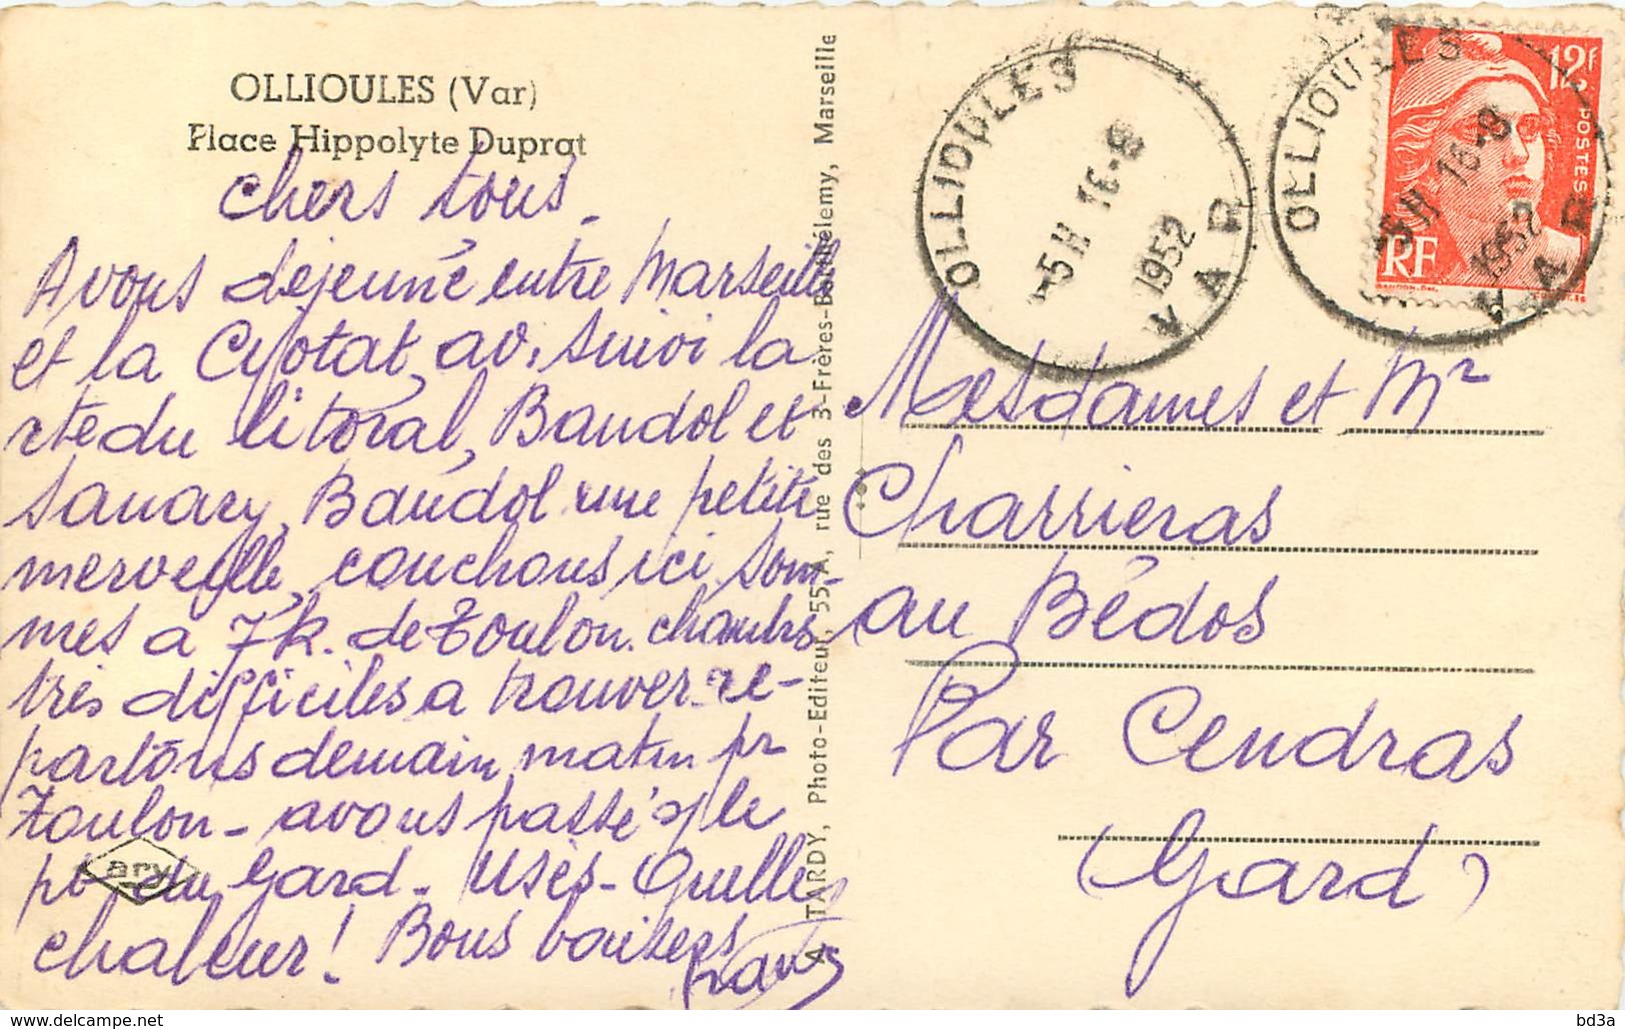 OLLIOULES (Var)
Place Hippolyte Duprat
chers tous.
Avons dejeuné entre Marseille
et la Cyotat, av. suivi la
cte du litoral, Bandol et
Sanary, Bandol une petite
merveille, couchons ici som-
mes a 7k. de Toulon. chambres
très difficiles a trouver. re-
partons demain matin pr
Toulon - avons passé le
pt du Gard - Usès - Quelle
chaleur! Bons baisers
A. TARDY, Photo-Editeur, 55-A, rue des 3-Frères-Barthélemy, Marseille
ary
OLLIOULES
-5H 16-8
1952
VAR
OLLIOULES
-5H 16-8
1952
VAR
12f
POSTES
RF
Mesdames et Mr
Charrieras
au Bédos
Par Cendras
(Gard)
www.delcampe.net
bd3a